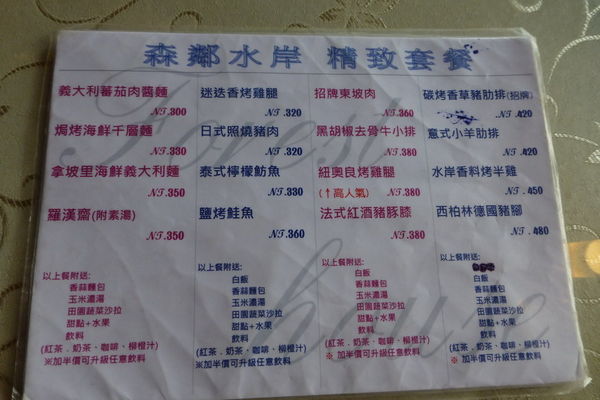 森鄰水岸 精致套餐
Forest house
義大利蕃茄肉醬麵
NT.300
焗烤海鮮千層麵
NT.330
拿坡里海鮮義大利麵
NT.350
羅漢齋(附素湯)
NT.350
以上餐附送:
香蒜麵包
玉米濃湯
田園蔬菜沙拉
甜點+水果
飲料
(紅茶.奶茶、咖啡、柳橙汁)
※加半價可升級任意飲料
迷迭香烤雞腿
NT.320
日式照燒豬肉
NT.320
泰式檸檬魴魚
NT.330
鹽烤鮭魚
NT.360
以上餐附送:
白飯
香蒜麵包
玉米濃湯
田園蔬菜沙拉
甜點+水果
飲料
(紅茶.奶茶、咖啡、柳橙汁)
※加半價可升級任意飲料
招牌東坡肉
NT.360
黑胡椒去骨牛小排
NT.380
紐奧良烤雞腿
(↑高人氣) NT.380
法式紅酒豬豚膝
NT.380
以上餐附送:
白飯
香蒜麵包
玉米濃湯
田園蔬菜沙拉
甜點+水果
飲料
(紅茶.奶茶、咖啡、柳橙汁)
※ 加半價可升級任意飲料
碳烤香草豬肋排(招牌)
NT.420
意式小羊肋排
NT.420
水岸香料烤半雞
NT.450
西柏林德國豬腳
NT.480
以上餐附送:
白飯
香蒜麵包
玉米濃湯
田園蔬菜沙拉
甜點+水果
飲料
(紅茶.奶茶、咖啡、柳橙汁)
※ 加半價可升級任意飲料